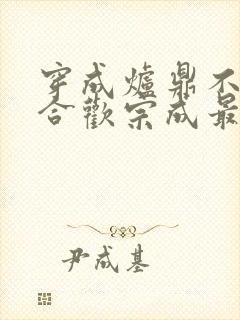 穿成爐鼎不
合歡宗成最
尹成基